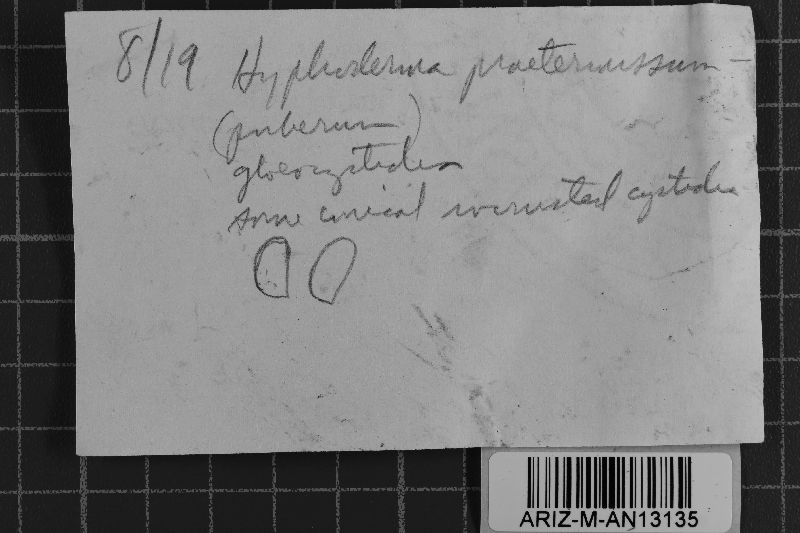 8/19 Hyphoderma praetermissum -
(puberum)
gloeocystidia
some conical incrusted cystidia
ARIZ-M-AN13135